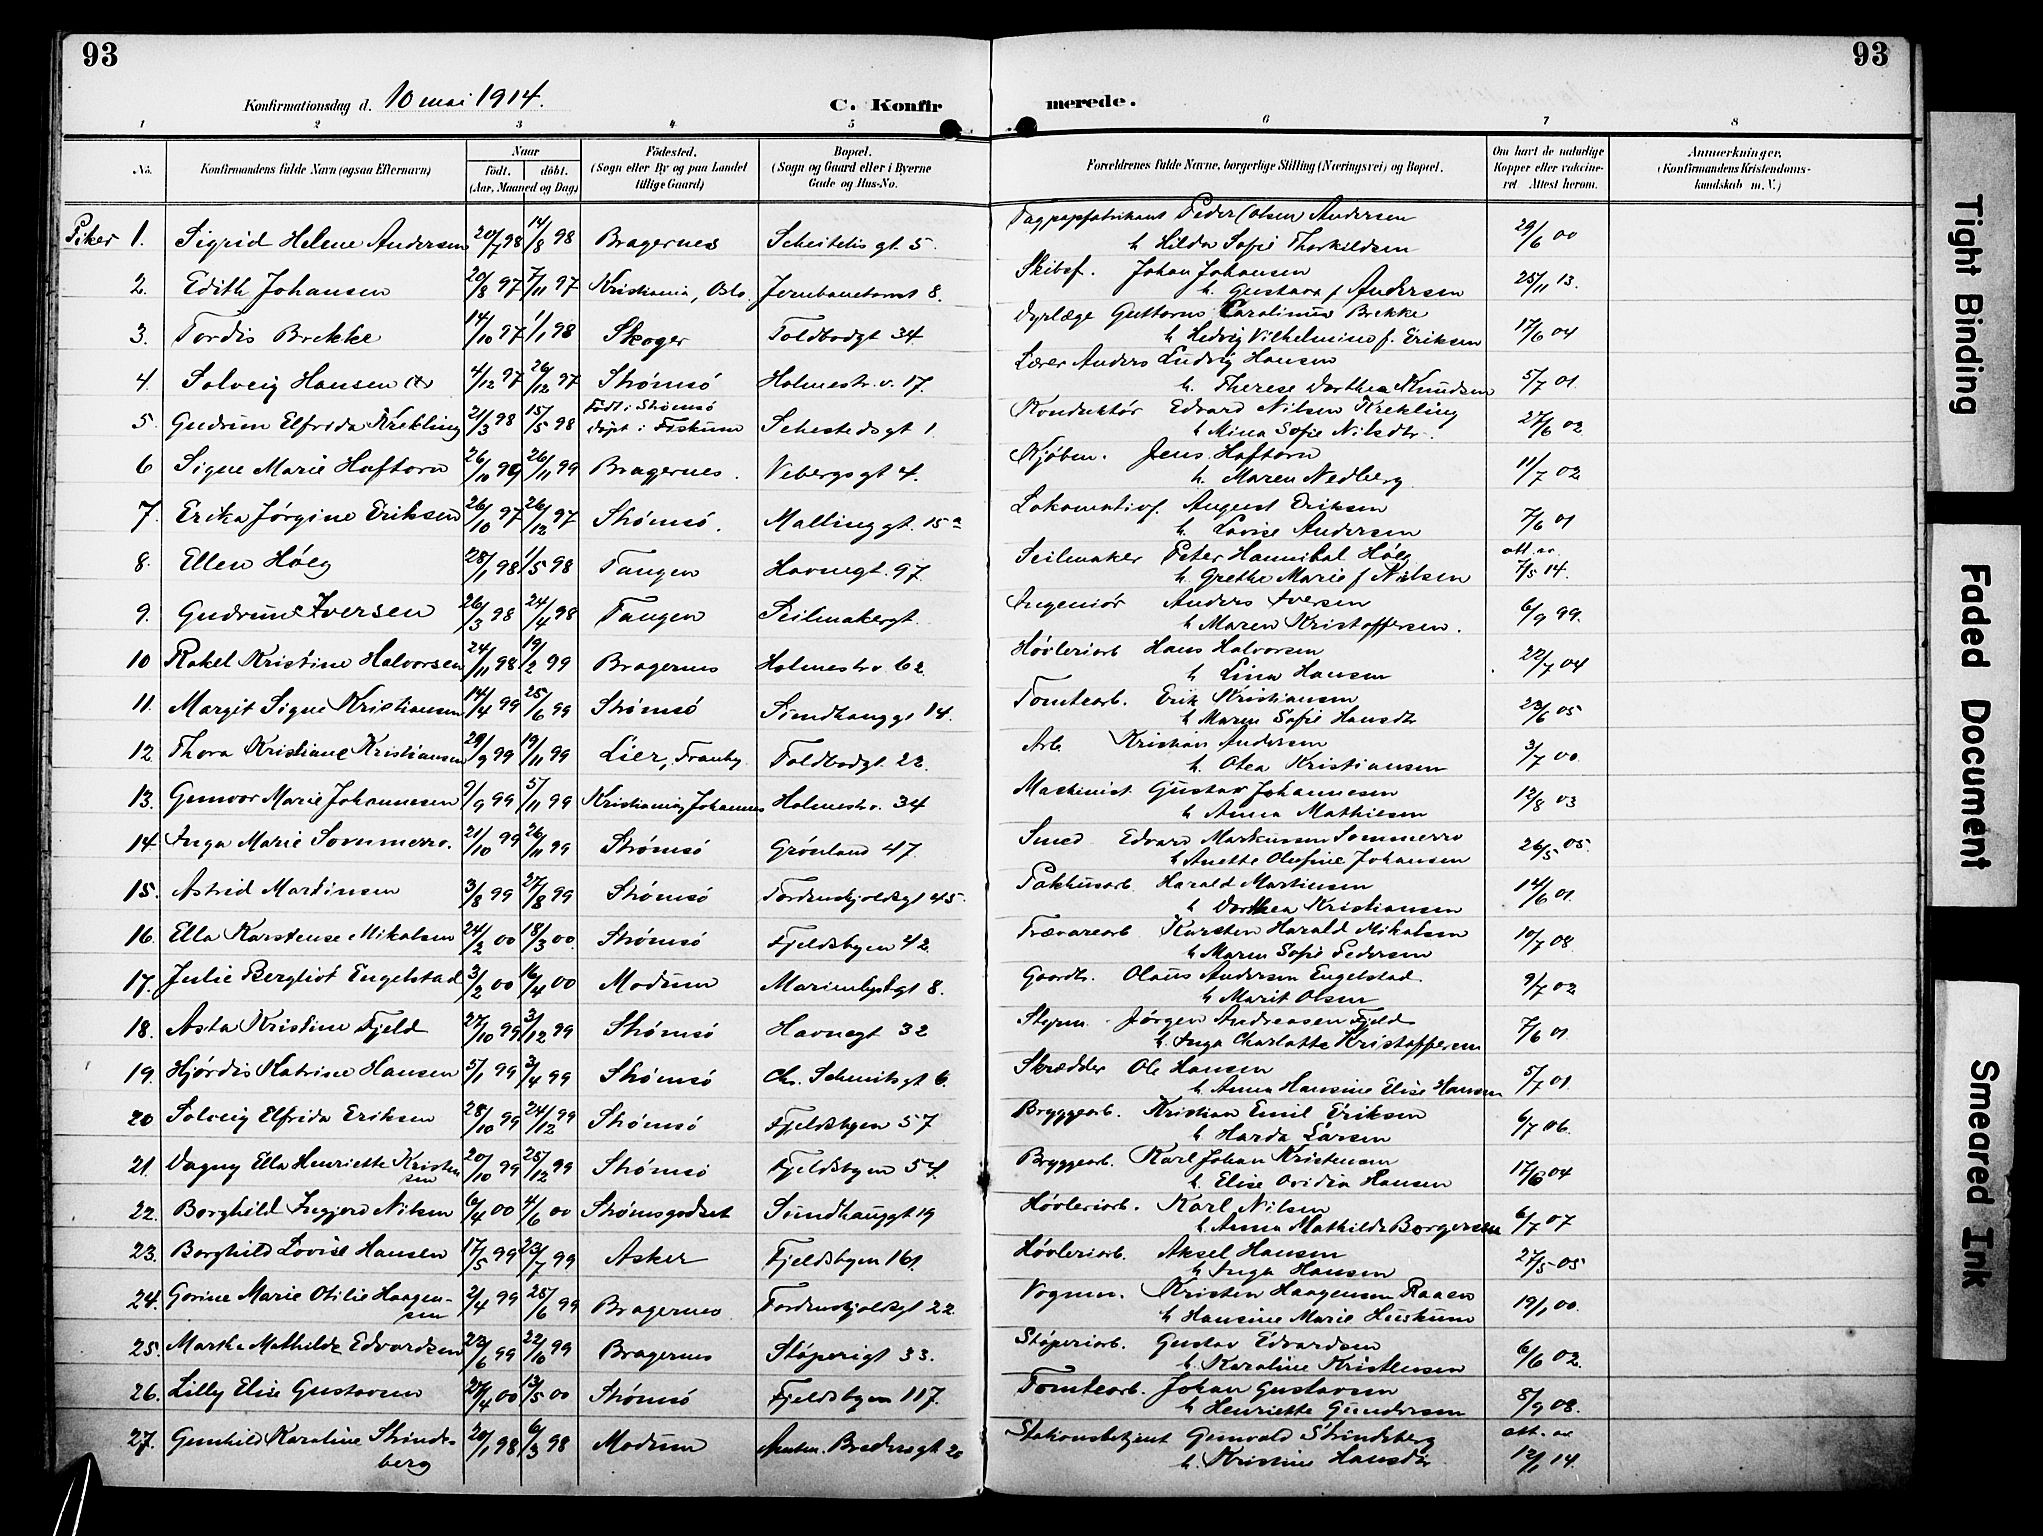 93
93
Konfirmationsdag d. 10 mai 1914.
C. Konfirmerede.
1 2 3 4 5 6 7 8
No.
Konfirmandens fulde Navn (ogsaa Efternavn)
Naar
født. døbt.
(Aar, Maaned og Dag)
Fødested.
(Sogn eller By og paa Landet
tillige Gaard)
Bopæl.
(Sogn og Gaard eller i Byerne
Gade og Hus-No.
Forældrenes fulde Navne, borgerlige Stilling (Næringsvei) og Bopæl.
Om havt de naturlige
Kopper eller vakcine-
ret Attest herom.
Anmerkninger,
(Konfirmandens Kristendoms-
kundskab m. V.)
Piker 1. Sigrid Helene Andersen 20/7 98 14/8 98 Bragernes Scheitelis gt. 5. Tagpapfabrikant Peder (Olsen) Andersen 29/6 00
h Hilda Sofie Thorkildsen
2. Edith Johansen 20/8 97 7/11 97 Kristiania, Oslo. Jernbanetomt 8. Skibsf. Johan Johansen 25/11 13.
h. Gustava f Andersen
3. Tordis Brekke 14/10 97 1/1 98 Skoger Toldbodgt 34 Dyrlæge Guttorm Carolinus Brekke 17/6 04
h Hedvig Vilhelmine f. Eriksen
4. Solveig Hansen 4/12 97 26/12 97 Strømsö Holmestr. v. 17. Lærer Anders Ludvig Hansen 5/7 01.
h. Therese Dorthea Knudsen
5. Gudrun Elfrida Krekling 21/3 98 15/5 98 Født i Strømsö døpt i Fiskum Sehestedsgt 1. Konduktör Edvard Nilsen Krekling 27/6 02.
h Mina Sofie Nilsdtr.
6 Signe Marie Haftorn 26/10 99 26/11 99 Bragernes. Vebergsgt 4. Kjøbm. Jens Haftorn 11/7 02
h. Maren Nedberg
7. Erika Jørgine Eriksen 26/10 97 26/12 97 Strømsö. Mallinggt. 15 a Lokomotivf. August Eriksen 7/6 01
h. Lovise Andersen
8. Ellen Höeg 28/1 98 1/5 98 Tangen Havnegt. 97. Seilmaker Peter Hannibal Höeg att. av 7/5 14.
h. Grethe Marie f Nielsen
9. Gudrun Iversen 26/3 98 24/4 98 Tangen Seilmakergt. Ingeniör Anders Iversen 6/9 99.
h Maren Kristoffersen.
10 Rakel Kristine Halvorsen 24/11 98 19/2 99 Bragernes Holmestrv. 62. Høvleriarb Hans Halvorsen 22/7 04
h Lina Hansen
11. Margit Signe Kristiansen 14/4 99 25/6 99 Strømsö Sundhauggt 14. Tomtearb. Erik Kristiansen 23/6 05
h Maren Sofie Hansdtr
12. Thora Kristiane Kristiansen 29/9 99 19/11 99 Lier, Tranby. Toldbodgt 22. Arb Kristian Andersen 3/7 00.
h. Otea Kristiansen
13. Gunvor Marie Johannesen 9/9 99 5/11 99 Kristiania, Johannes Holmestrv. 34 Maskinist. Gustav Johannesen 12/8 03
h Anna Mathiesen
14. Inga Marie Sommerro. 21/10 99 26/11 99 Strømsö Grønland 47. Smed Edvard Markussen Sommerro 26/5 05.
h Anette Olufine Johansen
15. Astrid Martinsen 3/8 99 27/8 99 Strømsö Tordenskjoldsgt 45. Pakhusarb. Harald Martinsen 14/6 01.
h Dorthea Kristiansen
16. Ella Karstense Mikalsen 24/2 00 18/3 00. Strømsö Fjeldsbyen 42. Trævarearb. Karsten Harald Mikalsen 10/7 08.
h Maren Sofie Pedersen
17. Julie Bergliot Engelstad 3/2 00 16/4 00 Modum Marienlystgt 8. Gaardb. Olaus Andersen Engelstad 9/7 02
h Marit Olsen
18. Asta Kristine Fjeld 27/10 99 3/12 99 Strømsö Havnegt 32 Styrm. Jørgen Andreasen Fjeld 7/6 01.
h. Inga Charlotte Kristoffersen
19. Hjørdis Katrine Hansen 5/1 99 3/4 99 Strømsö Chr. Schmitsgt 6. Skrædder Ole Hansen 5/7 01.
h Anna Hansine Elise Hansen
20 Solveig Elfrida Eriksen 28/10 99 24/12 99 Strømsö Fjeldsbyen 57 Bryggearb. Kristian Emil Eriksen 6/7 06.
h Harda Larsen
21. Dagny Ella Henriette Kristensen 20/10 99 25/12 99 Strømsö Fjeldsbyen 54. Bryggearb. Karl Johan Kristensen 17/6 04
h. Elise Ovidia Hansen
22. Borghild Ingjerd Nilsen 6/4 00 4/6 00 Strømsgodset Sundhauggt 19 Høvleriarb. Karl Nilsen 6/7 07
h. Anna Mathilde Borgersen
23. Borghild Lovise Hansen 17/5 99 23/7 99 Asker Fjeldsbyen 161. Høvleriarb. Aksel Hansen 27/5 05
h Inga Hansen
24. Gorine Marie Otilie Haagensen 2/4 99 25/6 99 Bragernes Tordenskjoldsgt 22 Vognm. Kristen Haagensen Raaen 19/1 00.
h Hansine Marie Huskum
25. Marthe Mathilde Edvardsen 23/6 99 22/10 99 Bragernes Støperigt 33. Støperiarb. Gustav Edvardsen 6/6 02.
h. Karoline Kristensen
26. Lilly Elise Gustavsen 27/4 00 13/5 00 Strømsö Fjeldsbyen 117. Tomtearb. Johan Gustavsen 8/9 08.
h Henriette Gundersen
27. Gunhild Karoline Strindeberg 20/1 98 6/3 98 Modum Anton Bredersgt 20 Stationsbetjent Gunvald Strindeberg att. av 12/1 14.
h. Kristine Hansdtr
Tight Binding
Faded Document
Smeared Ink